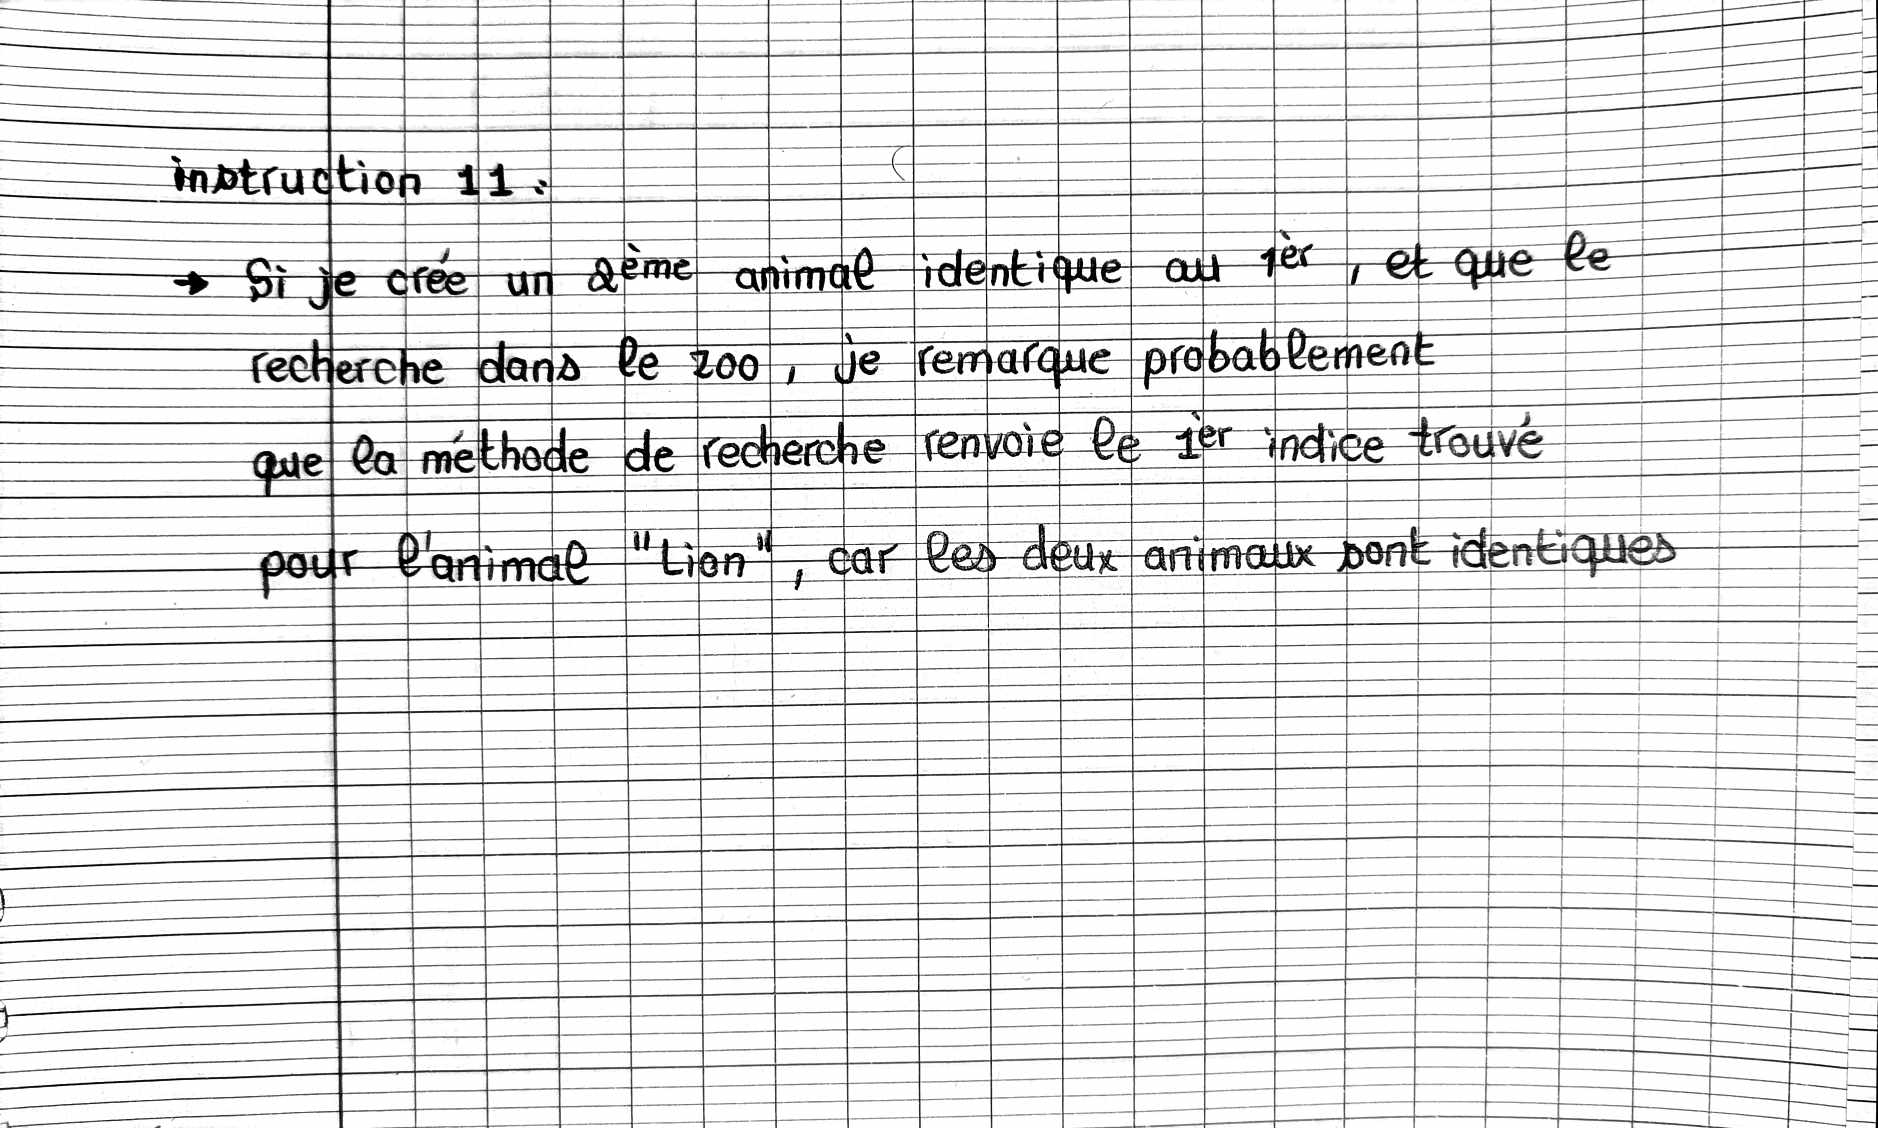 instruction 11 :
→ Si je crée un 2ème animal identique au 1èr , et que le
recherche dans le zoo , je remarque probablement
que la méthode de recherche renvoie le 1èr indice trouvé
pour l'animal "Lion" , car les deux animaux sont identiques